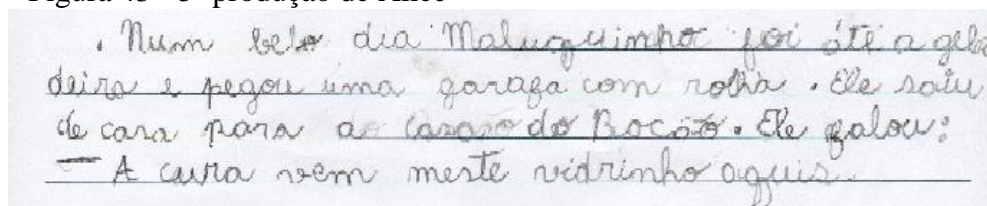 Figura 43 - 3ª produção de Alice
. Num belo dia Maluquinho foi áté a gela
deira e pegou uma garafa com rolha . Ele saiu
de cara para a do Bocão. Ele galou:
— A cura vem meste vidrinho aquis.